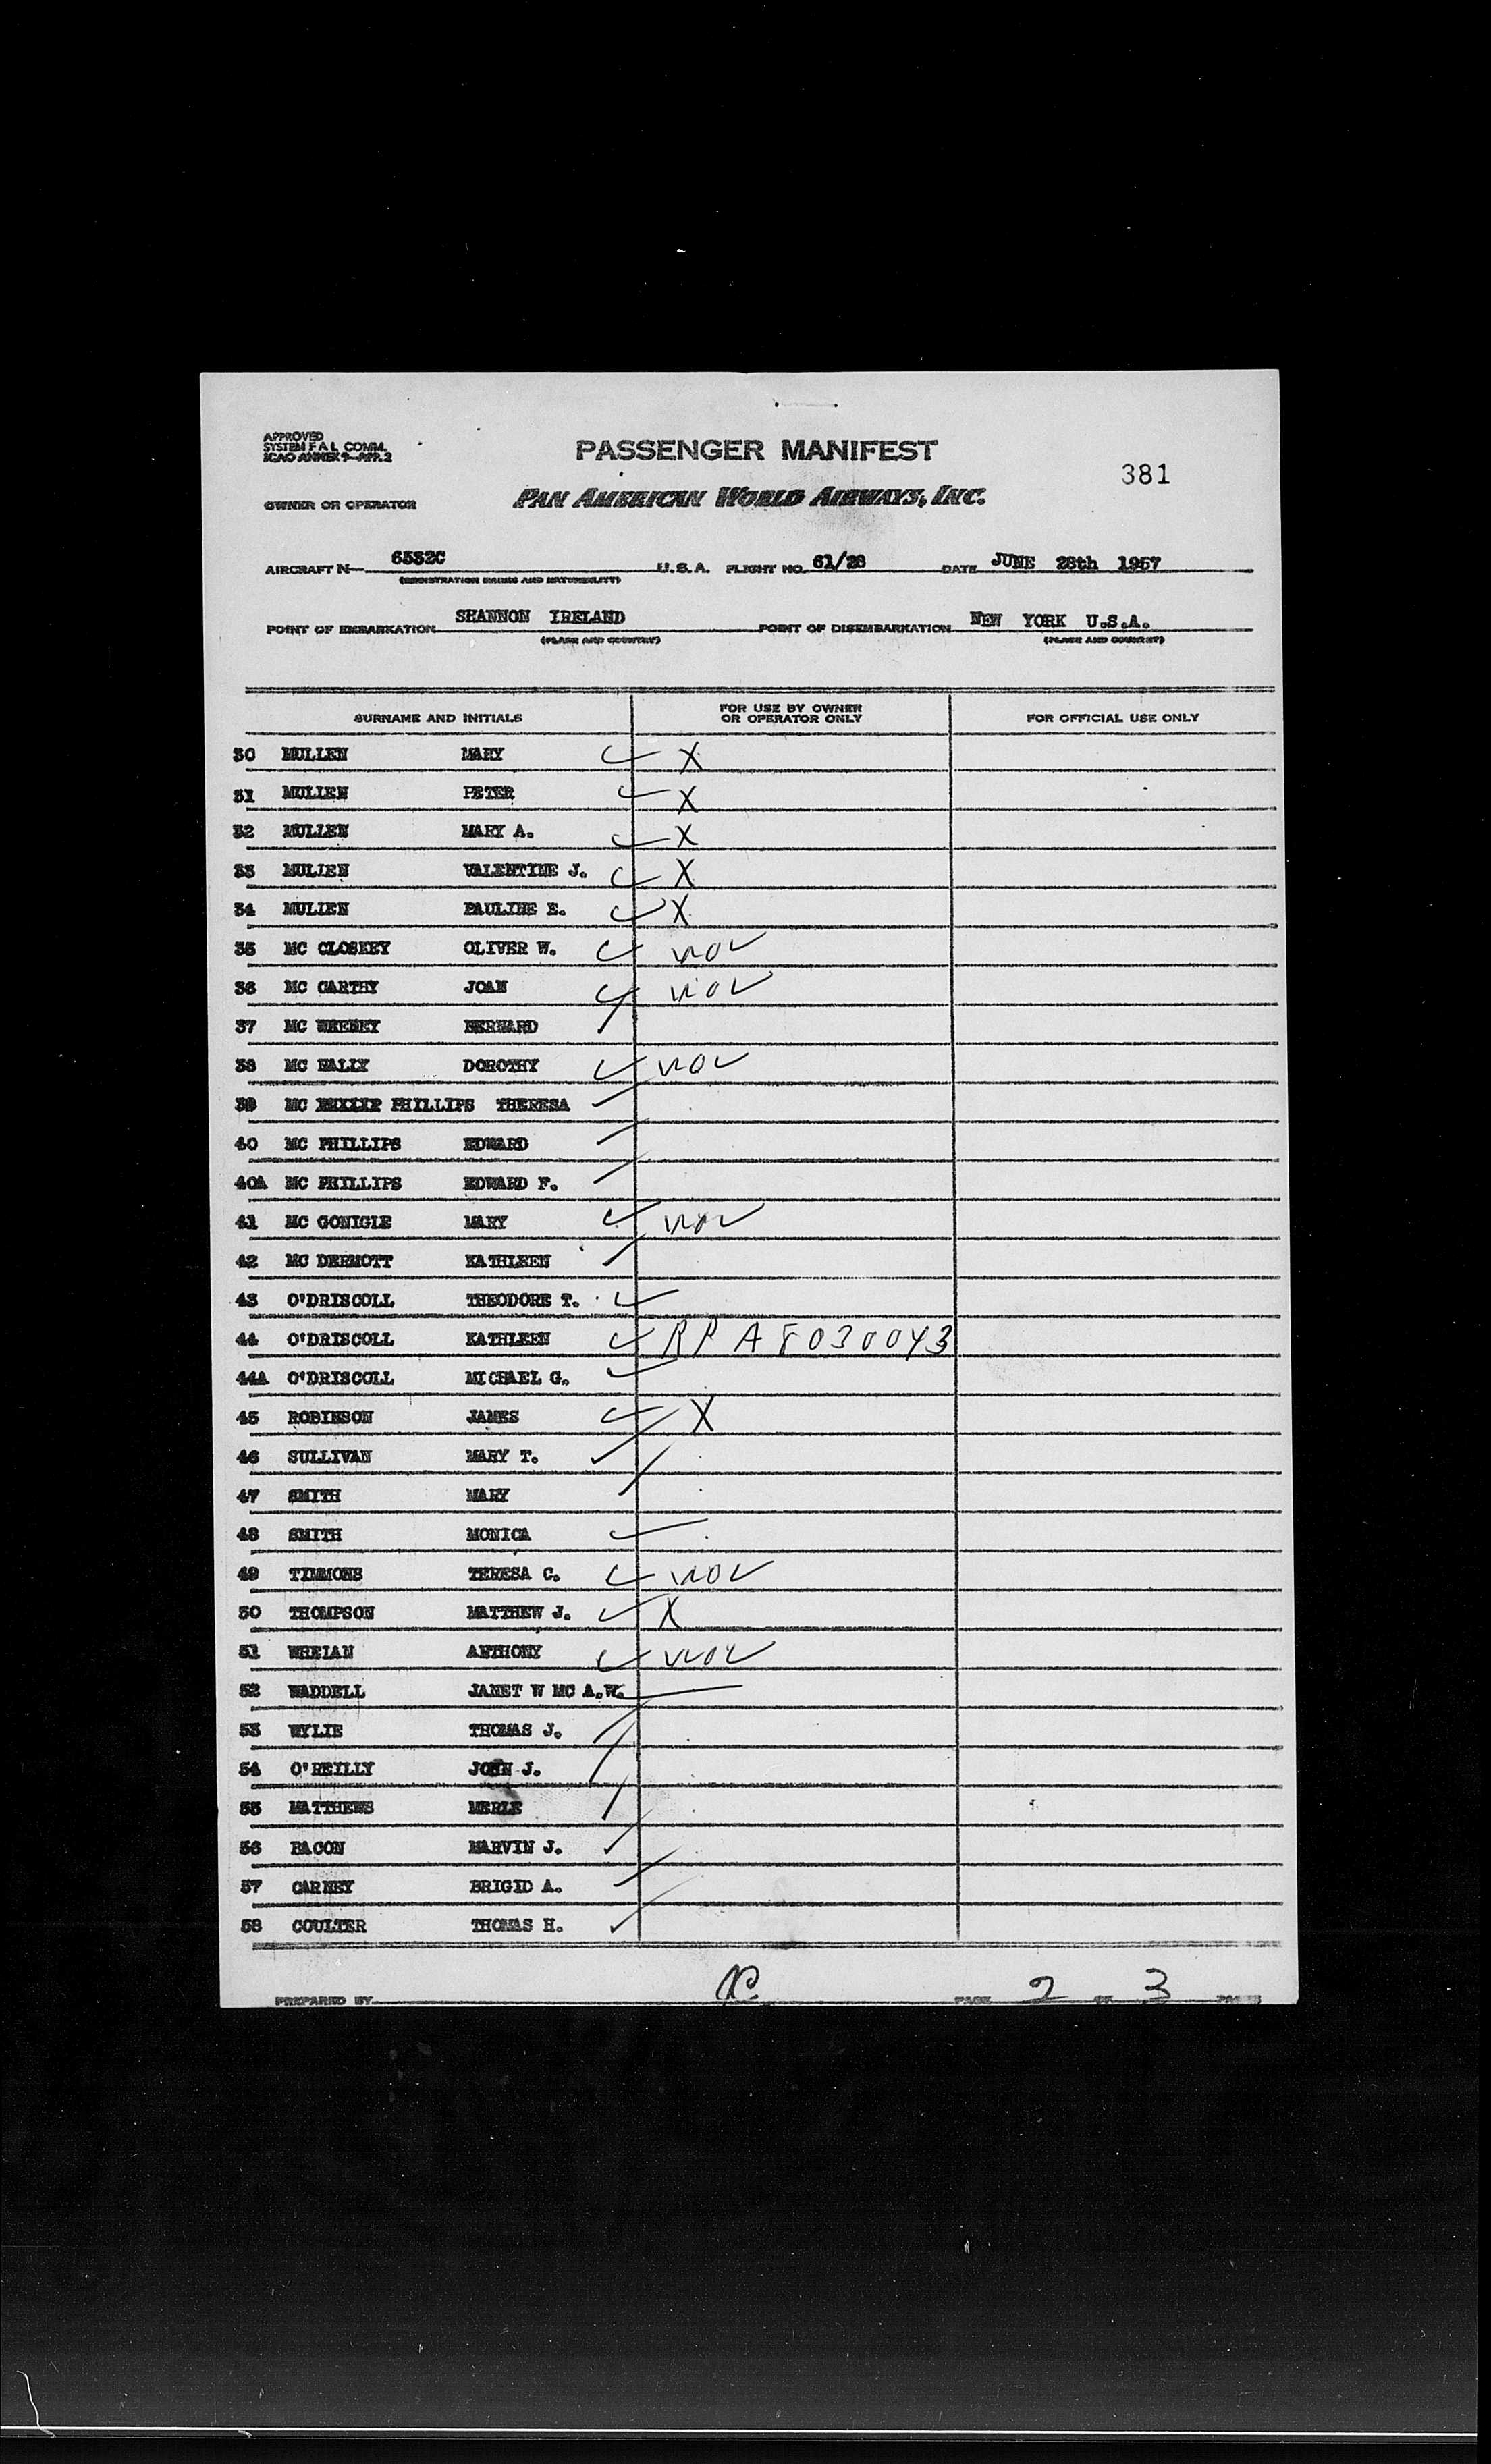 APPROVED
SYSTEM F A L COMM.
ICAO ANNEX 9—APP. 2
PASSENGER MANIFEST
381
OWNER OR OPERATOR PAN AMERICAN WORLD AIRWAYS, INC.
AIRCRAFT N— 6532C U.S.A. FLIGHT NO. 61/28 DATE JUNE 28th 1957
(REGISTRATION MARKS AND NATIONALITY)
POINT OF EMBARKATION SHANNON IRELAND POINT OF DISEMBARKATION NEW YORK U.S.A.
(PLACE AND COUNTRY) (PLACE AND COUNTRY)
SURNAME AND INITIALS FOR USE BY OWNER OR OPERATOR ONLY FOR OFFICIAL USE ONLY
30 MULLEN MARY ✓ X
31 MULLEN PETER ✓ X
32 MULLEN MARY A. ✓ X
33 MULLEN VALENTINE J. ✓ X
34 MULLEN PAULINE E. ✓ X
35 MC CLOSKEY OLIVER W. ✓
36 MC CARTHY JOAN ✓
37 MC WEENEY BERNARD
38 MC NALLY DOROTHY ✓
39 MC PHILLIPS THERESA
40 MC PHILLIPS EDWARD
40A MC PHILLIPS EDWARD F.
41 MC GONIGLE MARY ✓
42 MC DERMOTT KATHLEEN
43 O'DRISCOLL THEODORE T. ✓
44 O'DRISCOLL KATHLEEN ✓ RP A8030043
44A O'DRISCOLL MICHAEL G. ✓
45 ROBINSON JAMES ✓ X
46 SULLIVAN MARY T. ✓
47 SMITH MARY
48 SMITH MONICA ✓
49 TIMMONS TERESA C. ✓
50 THOMPSON MATTHEW J. ✓ X
51 WHELAN ANTHONY ✓
52 WADDELL JANET W MC A.W.
53 WYLIE THOMAS J.
54 O'REILLY JOHN J.
55 MATTHEWS MERLE
56 BACON MARVIN J. ✓
57 CARNEY BRIGID A.
58 COULTER THOMAS H. ✓
PREPARED BY PAGE 2 OF 3 PAGES